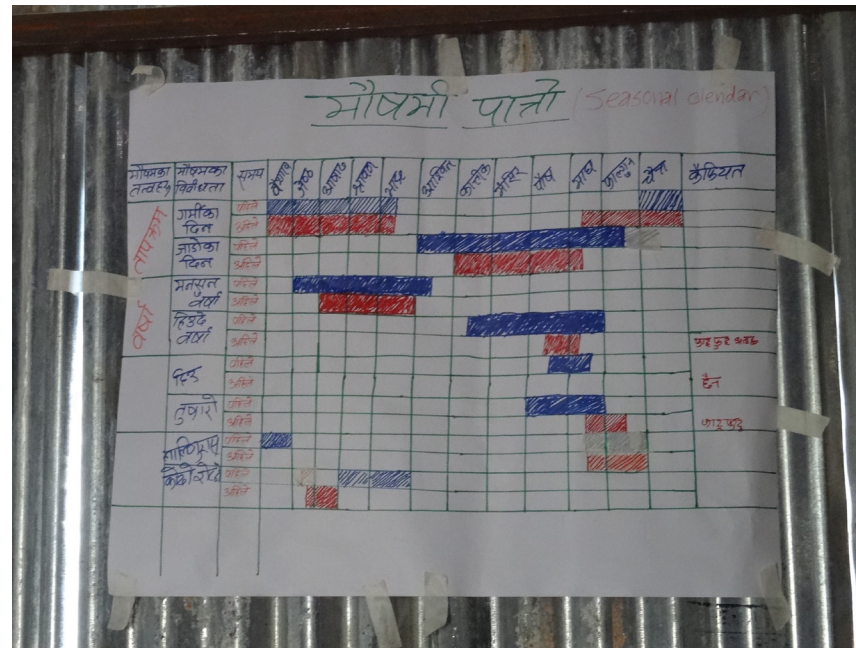 मौषमी पात्रो (Seasonal clendar)
मौषमका तत्वहरु मौषमका विविधता समय वैशाख जेष्ठ आषाढ श्रावण भाद्र आश्विन कार्तिक मंसिर पौष माघ फाल्गुन चैत्र कैफियत
तापक्रम गर्मीका दिन पहिले
अहिले
जाडोका दिन पहिले
अहिले
वर्षा मनसुन वर्षा पहिले
अहिले
हिउदे वर्षा पहिले
अहिले
हिउ पहिले
अहिले छैन
तुषारो पहिले
अहिले
पहिले
अहिले
पहिले
अहिले